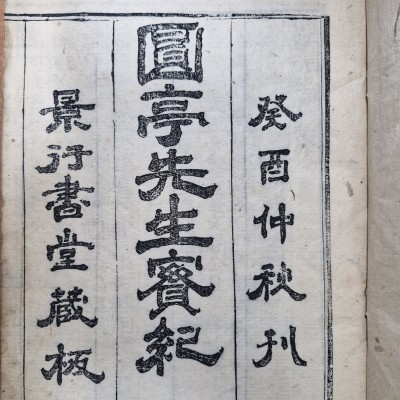 癸酉仲秋刊
圓亭先生賓紀
景行書堂藏板